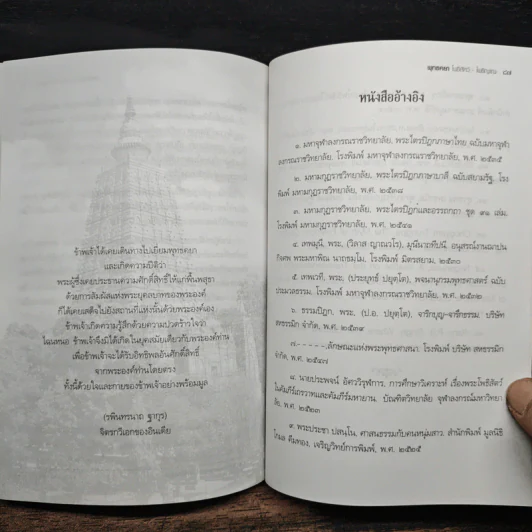 ข้าพเจ้าได้เคยเดินทางไปเยี่ยมพุทธคยา
และเกิดความปีติว่า
พระผู้ซึ่งเคยประธานความศักดิ์สิทธิ์ให้แก่พื้นพสุธา
ด้วยการสัมผัสแห่งพระยุคลบาทของพระองค์
ก็ได้เคยเสด็จไปยังสถานที่แห่งนั้นด้วยพระองค์เอง
ข้าพเจ้าเกิดความรู้สึกด้วยความปวดร้าวใจว่า
ไฉนหนอ ข้าพเจ้าจึงมิได้เกิดในยุคสมัยเดียวกับพระองค์ท่าน
เพื่อข้าพเจ้าจะได้รับอิทธิพลอันศักดิ์สิทธิ์
จากพระองค์ท่านโดยตรง
ทั้งนี้ด้วยใจและกายของข้าพเจ้าอย่างพร้อมมูล
(รพินทรนาถ ฐากูร)
จิตรกวีเอกของอินเดีย
พุทธคยา
หนังสืออ้างอิง
๑. มหาจุฬาลงกรณราชวิทยาลัย, พระไตรปิฎกภาษาไทย ฉบับมหาจุฬา
ลงกรณราชวิทยาลัย, โรงพิมพ์ มหาจุฬาลงกรณราชวิทยาลัย, พ.ศ. ๒๕๓๕
๒. มหามกุฏราชวิทยาลัย, พระไตรปิฎกภาษาบาลี ฉบับสยามรัฐ, โรง
พิมพ์ มหามกุฏราชวิทยาลัย, พ.ศ.
๓. มหามกุฏราชวิทยาลัย, พระไตรปิฎกและอรรถกถา ชุด ๙๑ เล่ม,
โรงพิมพ์ มหามกุฏราชวิทยาลัย, พ.ศ.
๔. เทพมุนี, พระ, (วิลาส ญาณวโร), มุนีนาถทีปนี, อนุสรณ์งานฌาปน
กิจศพ โรงพิมพ์ พ.ศ.
๕. เทพเวที, พระ, (ประยุทธ์ ปยุตโต), พจนานุกรมพุทธศาสตร์ ฉบับ
ประมวลธรรม, โรงพิมพ์ มหาจุฬาลงกรณราชวิทยาลัย, พ.ศ.
๖. ธรรมปิฎก, พระ, (ป.อ. ปยุตโต), จาริกบุญ-จารึกธรรม, บริษัท
สหธรรมิก จำกัด, พ.ศ.
๗.-----,ลักษณะแห่งพระพุทธศาสนา, โรงพิมพ์ บริษัท สหธรรมิก
จำกัด, พ.ศ.
๘. นายประพจน์ อัศววิรุฬหการ, การศึกษาวิเคราะห์ เรื่องพระโพธิสัตว์
ในคัมภีร์เถรวาทและคัมภีร์มหายาน, บัณฑิตวิทยาลัย จุฬาลงกรณ์มหาวิทยา
ลัย, พ.ศ.
๙. พระประชา ปสนฺโน, ศาสนธรรมกับคนหนุ่มสาว, สำนักพิมพ์ มูลนิธิ
โกมล คีมทอง, เจริญวิทย์การพิมพ์, พ.ศ.